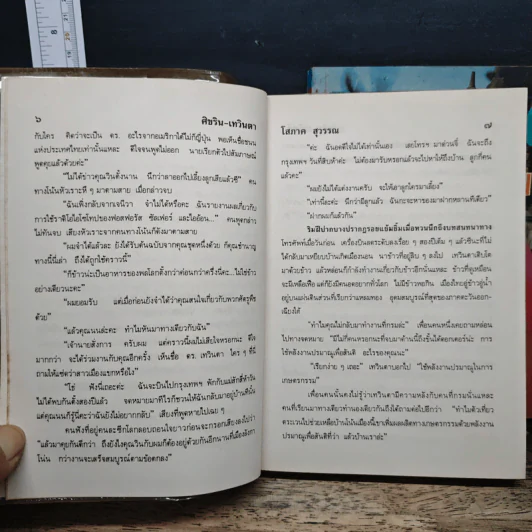 ๖
ศิขริน-เทวินตา
กับใคร คิดว่าจะเป็น ดร. อะไรจากอเมริกาได้ไม่กี่ญี่ปุ่น พอเห็นชื่อชนน
แห่งประเทศไทยเท่านั้นแหละ ดีใจจนพูดไม่ออก นายเรียกตัวไปสัมภาษณ์
พูดคุยแล้วด้วยค่ะ”
“ไม่ได้ข่าวคุณวินตั้งนาน นึกว่าลาออกไปเลี้ยงลูกเสียแล้วซี” คน
ทางโน้นหัวเราะหึ ๆ มาตามสาย เมื่อกล่าวจบ
“ฉันเพิ่งกลับจากเจนีวา จำไม่ได้หรือคะ ฉันรายงานผมเกี่ยวกับ
การใช้ราดิโอไอโซโทปของฟอสฟอรัส ซัลเฟอร์ และไออ้อน...” คนพูดกล่าว
ไม่ทันจบ เสียงหัวเราะจากคนทางโน้นก็ดังมาตามสาย
“ผมจำได้แล้วละ ยังได้รับต้นฉบับจากคุณชุดหนึ่งด้วย ก็คุณชำนาญ
ทางนี้นี่เล่า ถึงได้ถูกใช้คราวนี้”
“ก็ข้าวน่ะเป็นอาหารของพลโลกตั้งกว่าค่อนกว่าครึ่งนี่คะ...ไม่ใช่ข้าว
อย่างเดียวนะคะ”
“ผมยอมรับ แต่เมื่อก่อนยังจำได้ว่าคุณสนใจเกี่ยวกับพวกศัตรูพืช
ด้วย”
“แล้วคุณนนล่ะคะ ทำไมหันมาทางเดียวกับฉัน”
“เจ้านายสั่งการ ครับผม แต่คราวนี้ผมไม่เสียใจหรอกนะ ดีใจ
มากกว่า จะได้ร่วมงานกับคุณอีกครั้ง เห็นชื่อ ดร. เทวินตา ใคร ๆ ก็นึ
ถามให้แซ่ดว่าสาวเมืองแขกหรือไง”
“โธ่ ฟังนี่เถอะค่ะ ฉันจะบินไปกรุงเทพฯ พักกับแม่สักสี่ห้าวัน
ไม่พบกันตั้งสองปีแล้ว จดหมายมาทีไรก็ชวนให้ฉันกลับมาอยู่บ้านที่นั่น
แต่คุณนนก็รู้นี่คะว่าฉันยังไม่อยากกลับ” เสียงที่พูดหายไปเฉย ๆ
คนฟังที่อยู่คนละซีกโลกลอบถอนใจยาวก่อนจะกรอกเสียงลงไปว่า
“แล้วมาคุยกันดีกว่า ถึงยังไงคุณวินกับผมก็ต้องอยู่ด้วยกันอีกนานที่เมืองลังกา
โน่น กว่างานจะเสร็จสมบูรณ์ตามข้อตกลง”
โสภาค สุวรรณ
๗
“ค่ะ ฉันอดดีใจไม่ได้เท่านั้นเอง เลยโทรฯ มาด่วนจี๋ ฉันจะถึง
กรุงเทพฯ วันที่สิบห้าค่ะ ไม่ต้องมารับหรอกแล้วจะไปหาให้ถึงบ้าน ลูกกี่คน
แล้วคะ”
“ผมยังไม่ได้แต่งงานครับ จะให้เอาลูกใครมาเลี้ยง”
“เท่านี้ละค่ะ นึกว่ามีลูกแล้ว ฉันกะจะหาของมาฝากหลานทีเดียว”
“ฝากผมก็แล้วกัน”
ริมฝีปากบางปรากฏรอยแย้มยิ้มเมื่อหวนนึกถึงบทสนทนาทาง
โทรศัพท์เมื่อวันก่อน เครื่องบินลดระดับลงเรื่อย ๆ สองปีเต็ม ๆ แล้วซินะที่ไม่
ได้กลับมาเหยียบบ้านเกิดเมืองนอน นาข้าวที่อยู่ลิบ ๆ ลงไป เทวินตาเติบโต
มาด้วยข้าว แล้วหล่อนก็กำลังทำงานเกี่ยวกับข้าวอีกนั่นแหละ ข้าวที่ดูเหมือน
จะมีเหลือเฟือ แต่ก็ยังมีคนอดอยากทั่วโลก ไม่มีข้าวพอกิน เมืองไทยอู่ข้าวอู่น้ำ
อยู่บนแผ่นดินส่วนที่เรียกว่าแหลมทอง อุดมสมบูรณ์ที่สุดของภาคตะวันออก-
เฉียงใต้
“ทำไมคุณไม่กลับมาทำงานที่กรมล่ะ” เพื่อนคนหนึ่งเคยถามหล่อน
ไปทางจดหมาย “มีไม่กี่คนหรอกนะที่จบมาด้านนี้ถึงขั้นได้ดอกเตอร์น่ะ การ
ใช้พลังงานปรมาณูเพื่อสันติ อะไรของคุณนะ”
“เรียกง่าย ๆ เถอะ” เทวินตาบอกไป “ใช้พลังงานปรมาณูในการ
เกษตรกรรม”
เพื่อนคนนั้นคงไม่รู้ว่าเทวินตามีความหลังกับคนที่กรมนั่นและ
คนที่เรียนมาทางเดียวทำนองเดียวกันถึงได้ถามต่อไปอีกว่า “ทำไมตัวเที่ยว
ตระเวนไปช่วยเหลือบ้านโน้นเมืองนี้เขาเพิ่มผลผลิตทางเกษตรกรรมด้วยพลังงาน
ปรมาณูเพื่อสันติที่ว่า แล้วบ้านเราล่ะ”